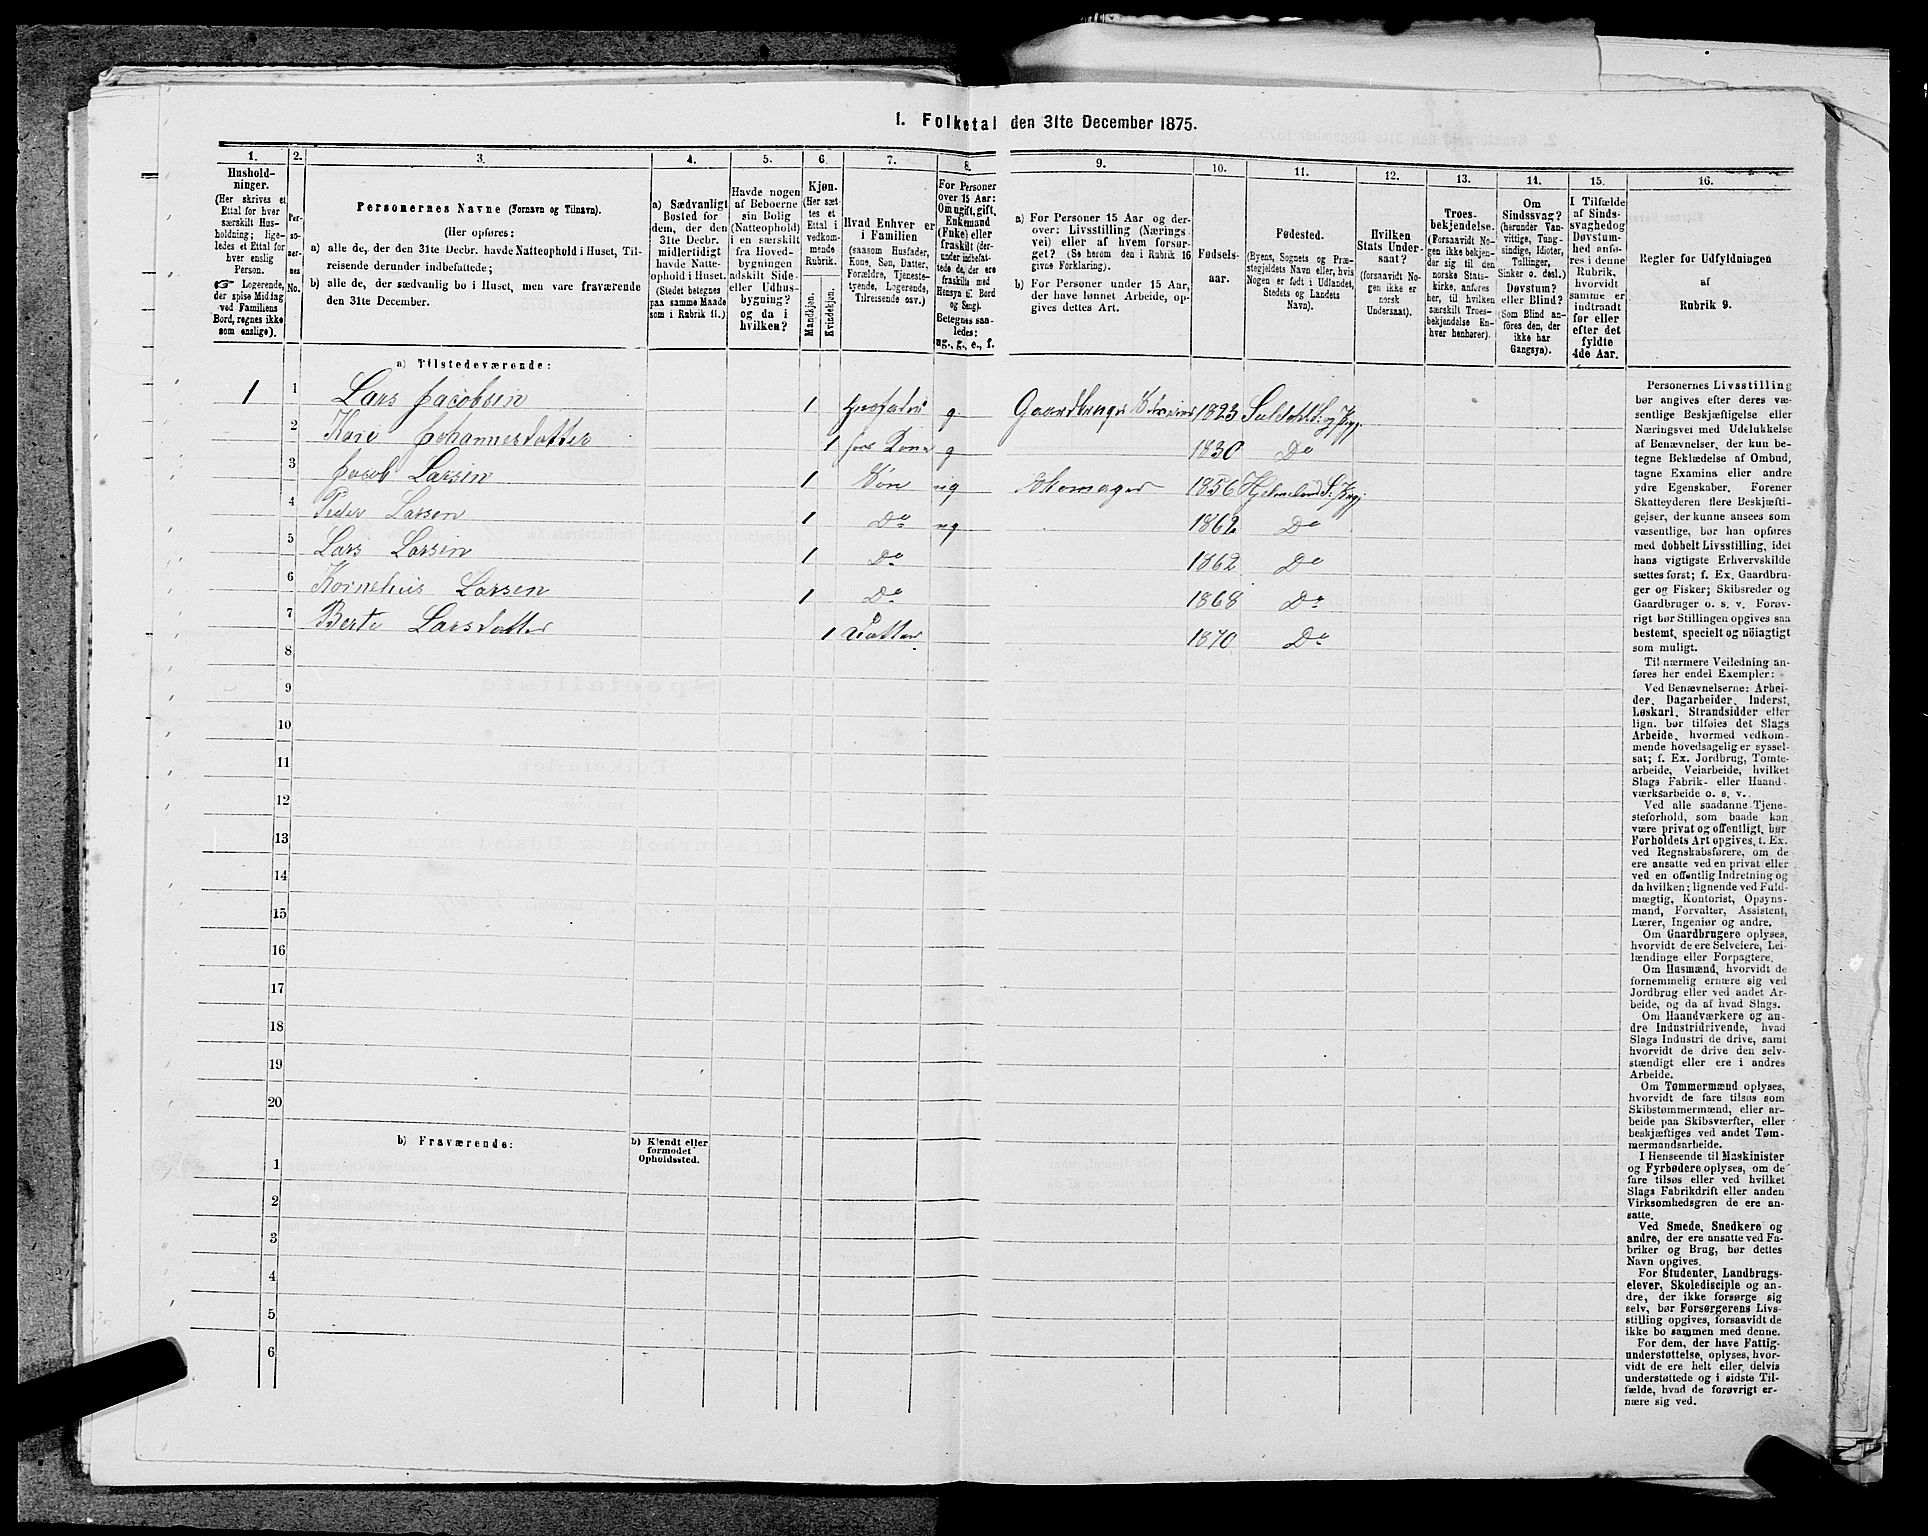 1. Folketal den 31te December 1875.
1. 2. 3. 4. 5. 6. 7. 8. 9. 10. 11. 12. 13. 14. 15. 16.
Hushold-
ninger.
(Her skrives et
Ettal for hver
særskilt Hus-
holdning; lige-
ledes et Ettal for
hver enslig
Person.
☞ Logerende,
der spise Middag
ved Familiens
Bord, regnes ikke
som enslige).
Per-
so-
ner-
nes
No.
Personernes Navne (Fornavn og Tilnavn).
(Her opføres:
a) alle de, der den 31te Decbr. havde Natteophold i Huset, Til-
reisende derunder indbefattede;
b) alle de, der sædvanlig bo i Huset, men vare fraværende
den 31te December.
a) Sædvanligt
Bosted for
dem, der den
31te Decbr.
midlertidigt
havde Natte-
ophold i Huset.
(Stedet betegnes
paa samme Maade
som i Rubrik 11.)
Havde nogen
af Beboerne
sin Bolig
(Natteophold)
i en særskilt
fra Hoved-
bygningen
adskilt Side-
eller Udhus-
bygning?
og da i
hvilken?
Kjøn.
(Her sæt-
tes et
Ettal i
vedkom-
mende
Rubrik.
Mandkjøn.
Kvindekjøn.
Hvad Enhver er
i Familien
(saasom Husfader,
Kone, Søn, Datter,
Forældre, Tjeneste-
tyende, Logerende,
Tilreisende osv.)
For Personer
over 15 Aar:
Om ugift, gift,
Enkemand
(Enke) eller
fraskilt (der-
under indbefat-
tede de, der ere
fraskilte med
Hensyn til Bord
og Seng).
Betegnes saa-
ledes:
ug., g., e., f.
a) For Personer 15 Aar og der-
over: Livsstilling (Nærings-
vei) eller af hvem forsør-
get? (Se herom den i Rubrik 16
givne Forklaring).
b) For Personer under 15 Aar,
der have lønnet Arbeide, op-
gives dettes Art.
Fødsels-
aar.
Fødested.
(Byens, Sognets og Præ-
stegjeldets Navn eller, hvis
Nogen er født i Udlandet,
Stedets og Landets
Navn).
Hvilken
Stats Under-
saat?
(forsaavidt No-
gen ikke er
norsk
Undersaat).
Troes-
bekjendelse.
(Forsaavidt No-
gen ikke bekjen-
der sig til den
norske Stats-
kirke, anføres
her, til hvilken
særskilt Troes-
bekjendelse En-
hver henhører).
Om
Sindssvag?
(herunder Van-
vittige, Tung-
sindige, Idioter,
Tullinger,
Sinker o. desl.)
Døvstum?
eller Blind?
(Som Blind an-
føres den, der
ikke har
Gangsyn).
I Tilfælde
af Sinds-
svaghed og
Døvstum-
hed anfø-
res i denne
Rubrik,
hvorvidt
samme er
indtraadt
før eller
efter det
fyldte
4de Aar.
Regler for Udfyldningen
af
Rubrik 9.
a) Tilstedeværende:
1 1 Lars Jacobsen 1 Husfader g. Gaardbruger 1823
2 Kari Johannesdatter 1 hans Kone g 1830 Do
3 Jacob Larsen 1 Søn ug Skomager 1856 Hjelmeland
4 Peder Larsen 1 Do ug 1862 Do
5 Lars Larsen 1 Do 1862 Do
6 Kornelius Larsen 1 Do 1868 Do
7 Berte Larsdatter 1 Datter 1870 Do
8
9
10
11
12
13
14
15
16
17
18
19
20
b) Fraværende:
b) Kjendt eller
formodet
Opholdssted.
1
2
3
4
5
6
Personernes Livsstilling
bør angives efter deres væ-
sentlige Beskjæftigelse eller
Næringsvei med Udelukkelse
af Benævnelser, der kun be-
tegne Beklædelse af Ombud,
tagne Examina eller andre
ydre Egenskaber. Forener
Skatteyderen flere Beskjæfti-
gelser, der kunne ansees som
væsentlige, bør han opføres
med dobbelt Livsstilling, idet
hans vigtigste Erhvervskilde
sættes først; f. Ex. Gaardbru-
ger og Fisker; Skibsreder og
Gaardbruger o. s. v. Forøv-
rigt bør Stillingen opgives saa
bestemt, specielt og nöiagtigt
som muligt.
Til nærmere Veiledning an-
føres her endel Exempler:
Ved Benævnelserne: Arbei-
der, Dagarbeider, Inderst,
Løskarl, Strandsidder eller
lign. bør tilføies det Slags
Arbeide, hvormed vedkom-
mende hovedsagelig er syssel-
sat; f. Ex. Jordbrug, Tomte-
arbeide, Veiarbeide, hvilket
Slags Fabrik- eller Haand-
værksarbeide o. s. v..
Ved alle saadanne Tjene-
steforhold, som baade kan
være privat og offentligt, bør
Forholdets Art opgives, t. Ex.
ved Regnskabsførere, om de
ere ansatte ved en privat eller
ved en offentlig Indretning og
da hvilken; lignende ved Fuld-
mægtig, Kontorist, Opsyns-
mand, Forvalter, Assistent,
Lærer, Ingeniør og andre.
Om Gaardbrugere oplyses,
hvorvidt de ere Selveiere, Lei-
lændinge eller Forpagtere.
Om Husmænd, hvorvidt de
fornemmelig ernære sig ved
Jordbrug eller ved andet Ar-
beide, og da af hvad Slags.
Om Haandværkere og an-
dre Industridrivende, hvad
Slags Industri de drive, samt
hvorvidt de drive den selv-
stændigt eller ere i andres
Arbeide.
Om Tømmermænd oplyses,
hvorvidt de fare tilsøs som
Skibstømmermænd, eller ar-
beide paa Skibsværfter, eller
beskjæftiges ved andet Tøm-
mermandsarbeide.
I Henseende til Maskinister
og Fyrbødere oplyses, om de
fare tilsøs eller ved hvilket
Slags Fabrikdrift eller anden
Virksomhedsgren de ere an-
satte.
Ved Smede, Snedkere og
andre, der ere ansatte ved Fa-
briker og Brug, bør dettes
Navn opgives.
For Studenter, Landbrugs-
elever, Skoledisciple og an-
dre, der ikke forsørge sig
selv, bør Forsørgerens Livs-
stilling opgives, forsaavidt de
ikke bo sammen med denne.
For dem, der have Fattig-
understøttelse, oplyses, hvor-
vidt de ere helt eller delvis
understøttede og i sidste Til-
fælde, hvad de forøvrigt er-
nære sig ved.